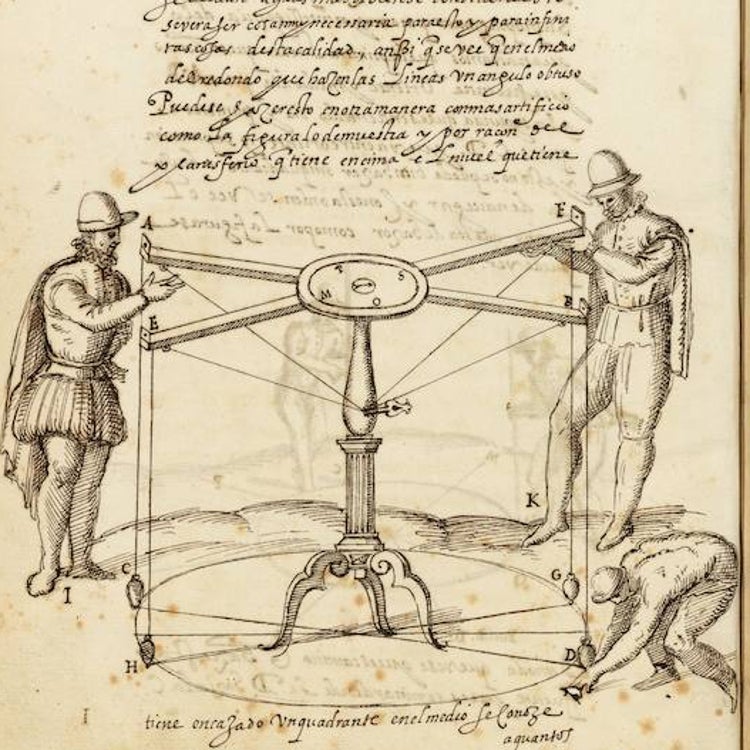 severa ser cosa muy necessaria para esto y para infini
tas cosas desta calidad, anssi q se vee q en el medio
del redondo que hazen las lineas un angulo obtuso
Puedese hazer esto en otra manera con mas artificio
como la figura lo demuestra y por raçon del
q tiene encima el nivel que tiene
A
F
T S
M O
E
B
K
C
G
I
H
D
tiene encaxado un quadrante en el medio se Conoze
aquantos